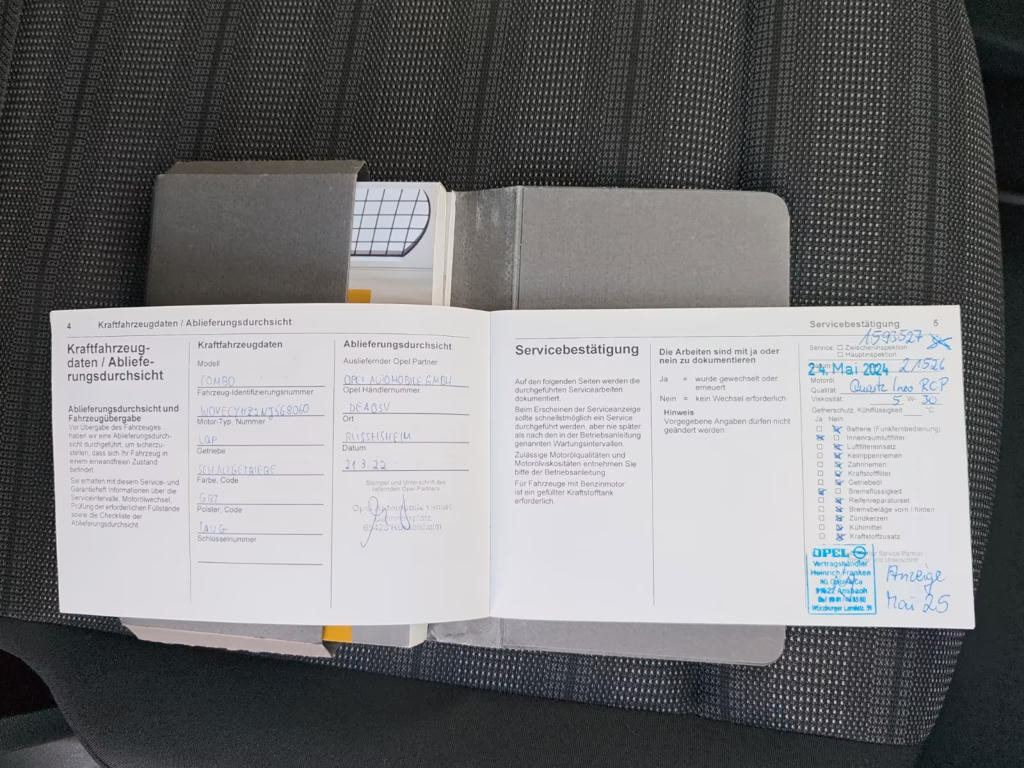 4 Kraftfahrzeugdaten / Ablieferungsdurchsicht
Kraftfahrzeug-
daten / Abliefe-
rungsdurchsicht
Ablieferungsdurchsicht und
Fahrzeugübergabe
Vor Übergabe des Fahrzeuges
haben wir eine Ablieferungsdurch-
sicht durchgeführt, um sicherzu-
stellen, dass sich Ihr Fahrzeug in
einem einwandfreien Zustand
befindet.
Sie erhalten mit diesem Service- und
Garantieheft Informationen über die
Serviceintervalle, Motorölwechsel,
Prüfung der erforderlichen Füllstände
sowie die Checkliste der
Ablieferungsdurchsicht.
Kraftfahrzeugdaten
Modell
COMBO
Fahrzeug-Identifizierungsnummer
Motor-Typ, Nummer
LGP
Getriebe
SCHALTGETRIEBE
Farbe, Code
Polster, Code
Schlüsselnummer
Ablieferungsdurchsicht
Ausliefernder Opel Partner
OPEL AUTOMOBILE GMBH
Opel Händlernummer
Ort
RÜSSELSHEIM
Datum
21.3.22
Stempel und Unterschrift des
liefernden Opel Partners
Servicebestätigung 5
Servicebestätigung
Auf den folgenden Seiten werden die
durchgeführten Servicearbeiten
dokumentiert.
Beim Erscheinen der Serviceanzeige
sollte schnellstmöglich ein Service
durchgeführt werden, aber nie später
als nach den in der Betriebsanleitung
genannten Wartungsintervallen.
Zulässige Motorölqualitäten und
Motorölviskositäten entnehmen Sie
bitte der Betriebsanleitung.
Für Fahrzeuge mit Benzinmotor
ist ein gefüllter Kraftstofftank
erforderlich.
Die Arbeiten sind mit ja oder
nein zu dokumentieren
Ja = wurde gewechselt oder
erneuert
Nein = kein Wechsel erforderlich
Hinweis
Vorgegebene Angaben dürfen nicht
geändert werden.
1593527
Service: Zwischeninspektion
Hauptinspektion
24. Mai 2024 21526
Motoröl
Qualität: Quartz Ineo RCP
Viskosität: 5 W- 30
Getriebeschutz, Kühlflüssigkeit °C
Ja Nein
Batterie (Funkfernbedienung)
Innenraumluftfilter
Luftfiltereinsatz
Keilrippenriemen
Zahnriemen
Kraftstofffilter
Getriebeöl
Bremsflüssigkeit
Reifenreparaturset
Bremsbeläge vorn / hinten
Zündkerzen
Kühlmittel
Kraftstoffzusatz
OPEL
Vertragshändler
Heinrich Franken
Ansbach
Würzburger Landstr.
Anzeige
Mai 25